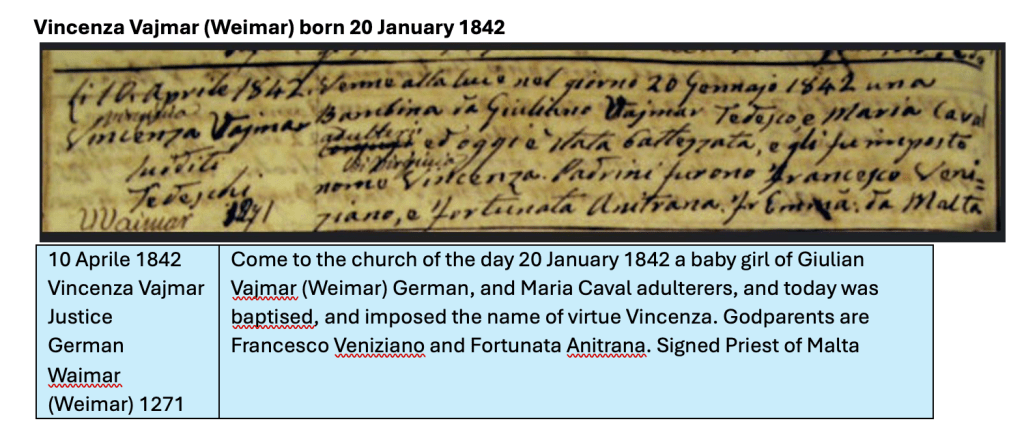 Vincenza Vajmar (Weimar) born 20 January 1842
li 10. Aprile 1842.
Vincenza Vajmar
Sudditi
Tedeschi
Waimar 1271
Venne alla luce nel giorno 20 Gennajo 1842 una
Bambina da Giuliano Vajmar Tedesco e Maria Caval
adulteri ed oggi è stata battezzata, e gli fu imposto
nome Vincenza. Padrini furono Francesco Veni=
ziano, e Fortunata Anitrana. Fr Emma. da Malta
10 Aprile 1842
Vincenza Vajmar
Justice
German
Waimar
(Weimar) 1271
Come to the church of the day 20 January 1842 a baby girl of Giulian
Vajmar (Weimar) German, and Maria Caval adulterers, and today was
baptised, and imposed the name of virtue Vincenza. Godparents are
Francesco Veniziano and Fortunata Anitrana. Signed Priest of Malta